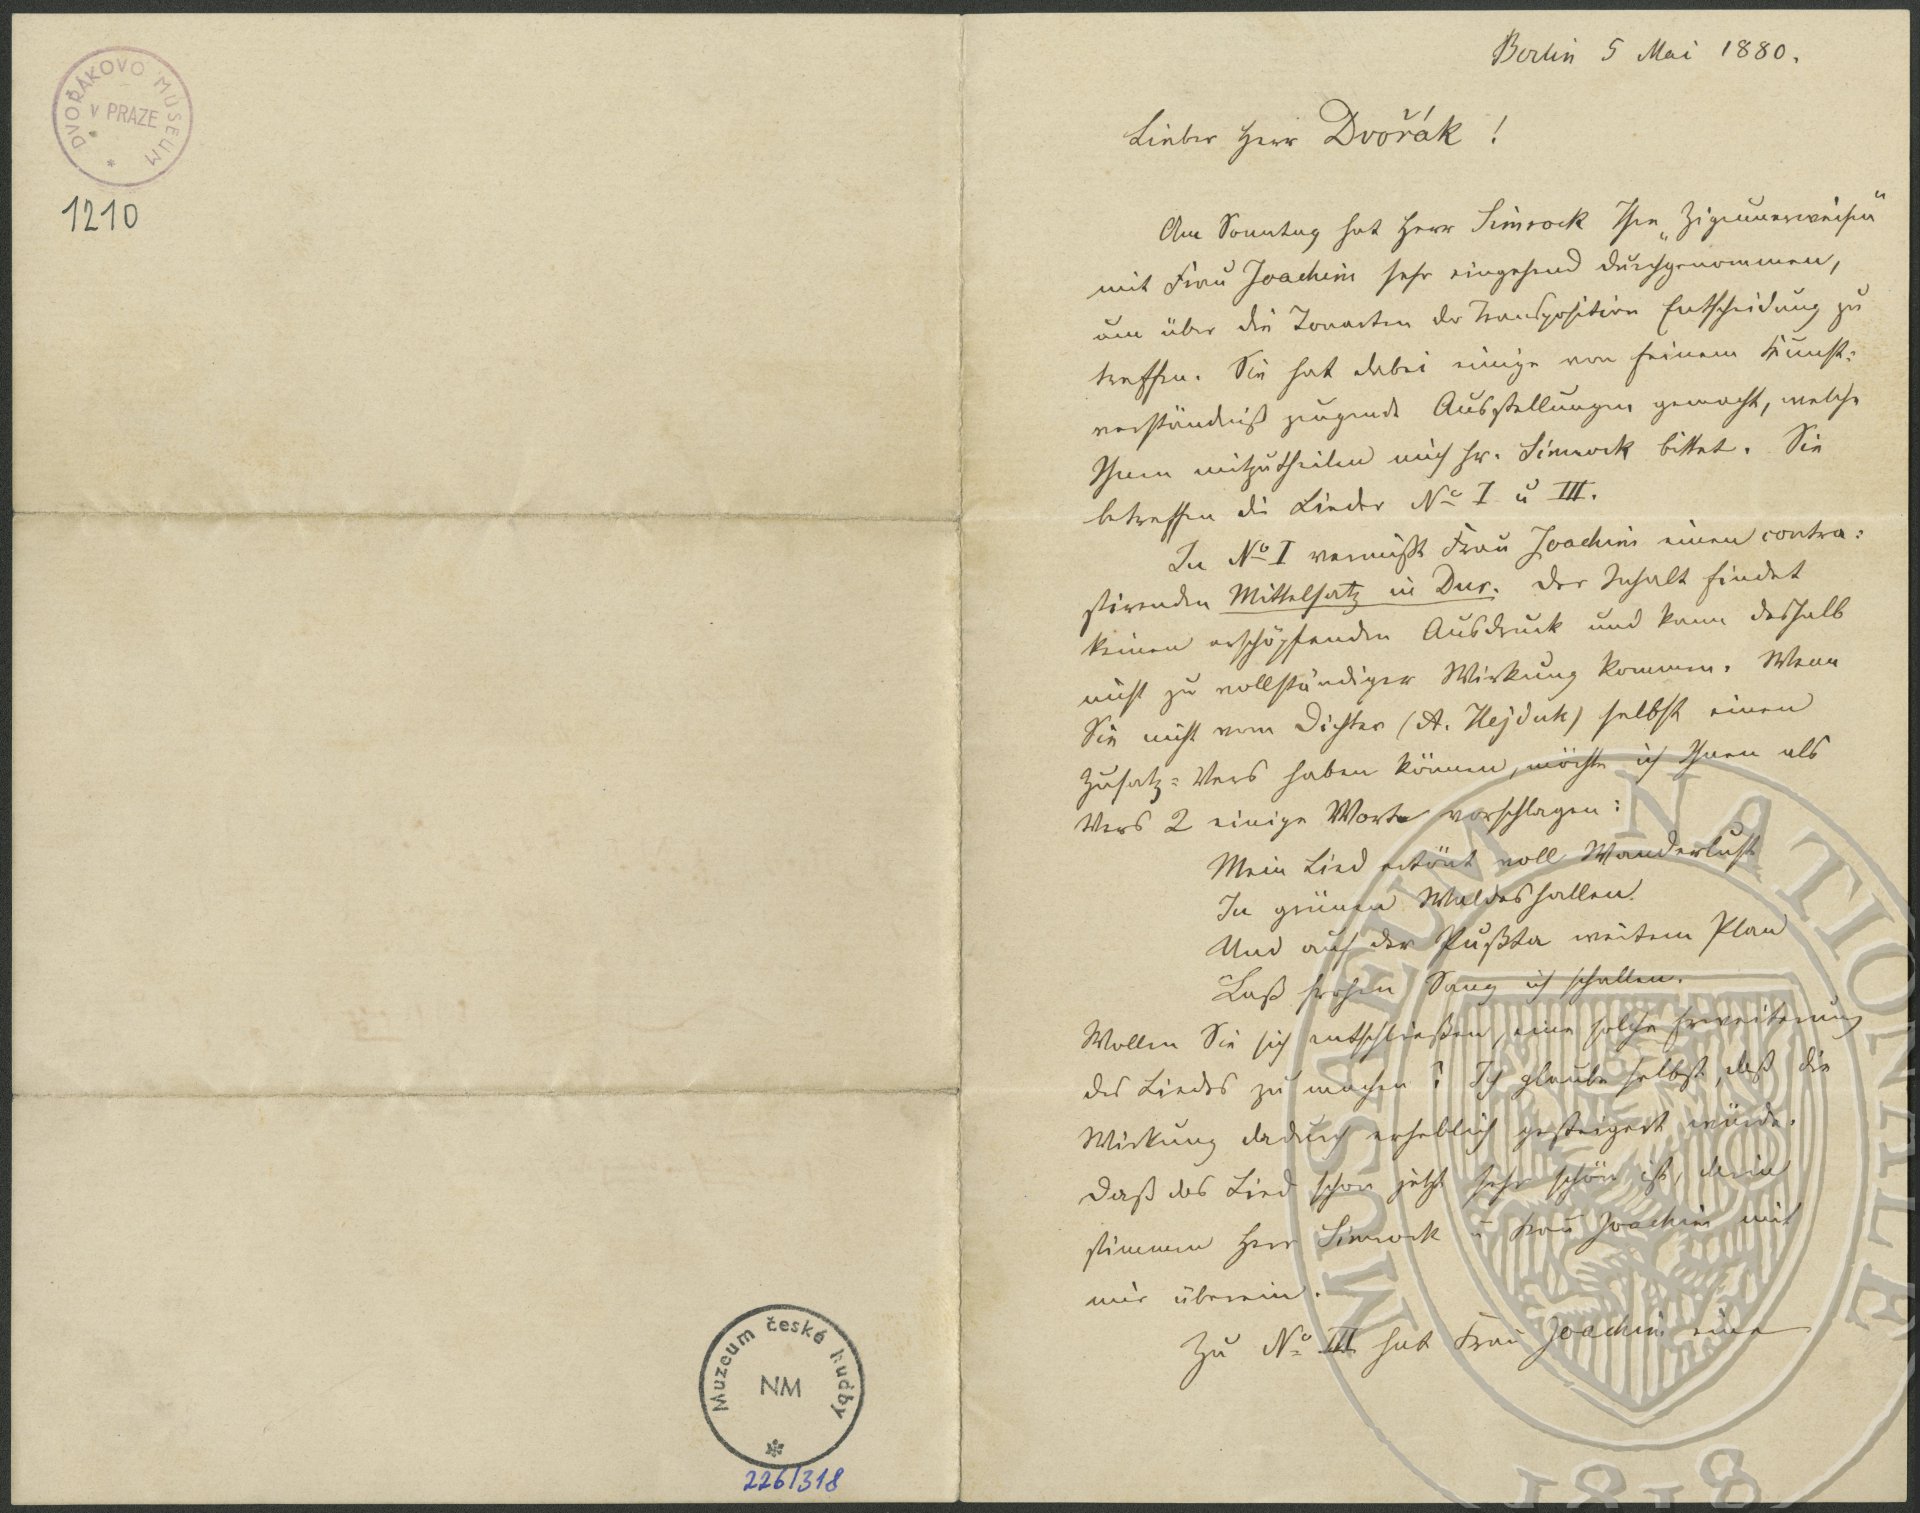 DVOŘÁKOVO MUSEUM
v PRAZE
1210
Berlin 5 Mai 1880.
Lieber Herr Dvořák!
Am Sonntag hat Herr Simrock Ihre „Zigeunerweisen“
mit Frau Joachim sehr eingehend durchgenommen,
um über die Tonarten der Transposition Entscheidung zu
treffen. Sie hat dabei einige von feinem Kunst-
verständniß zeugende Ausstellungen gemacht, welche
Ihnen mitzutheilen mich Hr. Simrock bittet. Sie
betreffen die Lieder No I u III.
In No I vermißt Frau Joachim einen contra-
stirenden Mittelsatz in Dur. Der Inhalt findet
keinen erschöpfenden Ausdruck und kann deshalb
nicht zu vollständiger Wirkung kommen. Wenn
Sie nicht vom Dichter (A. Hejduk) selbst einen
Zusatz-Vers haben können, möchte ich Ihnen als
Vers 2 einige Worte vorschlagen:
Mein Lied ertönt voll Wanderlust
In grünen Waldeshallen.
Und auf der Pußta weitem Plan
Laß frohen Sang ich schallen.
Wollen Sie sich entschließen, eine solche Erweiterung
des Liedes zu machen? Ich glaube selbst, daß die
Wirkung dadurch erheblich gesteigert würde.
Daß das Lied schon jetzt sehr schön ist, darin
stimmen Herr Simrock u Frau Joachim mit
mir überein.
Zu No III hat Frau Joachim eine
Muzeum české hudby
NM
226/318
MUSAEUM NATIONALE
1818